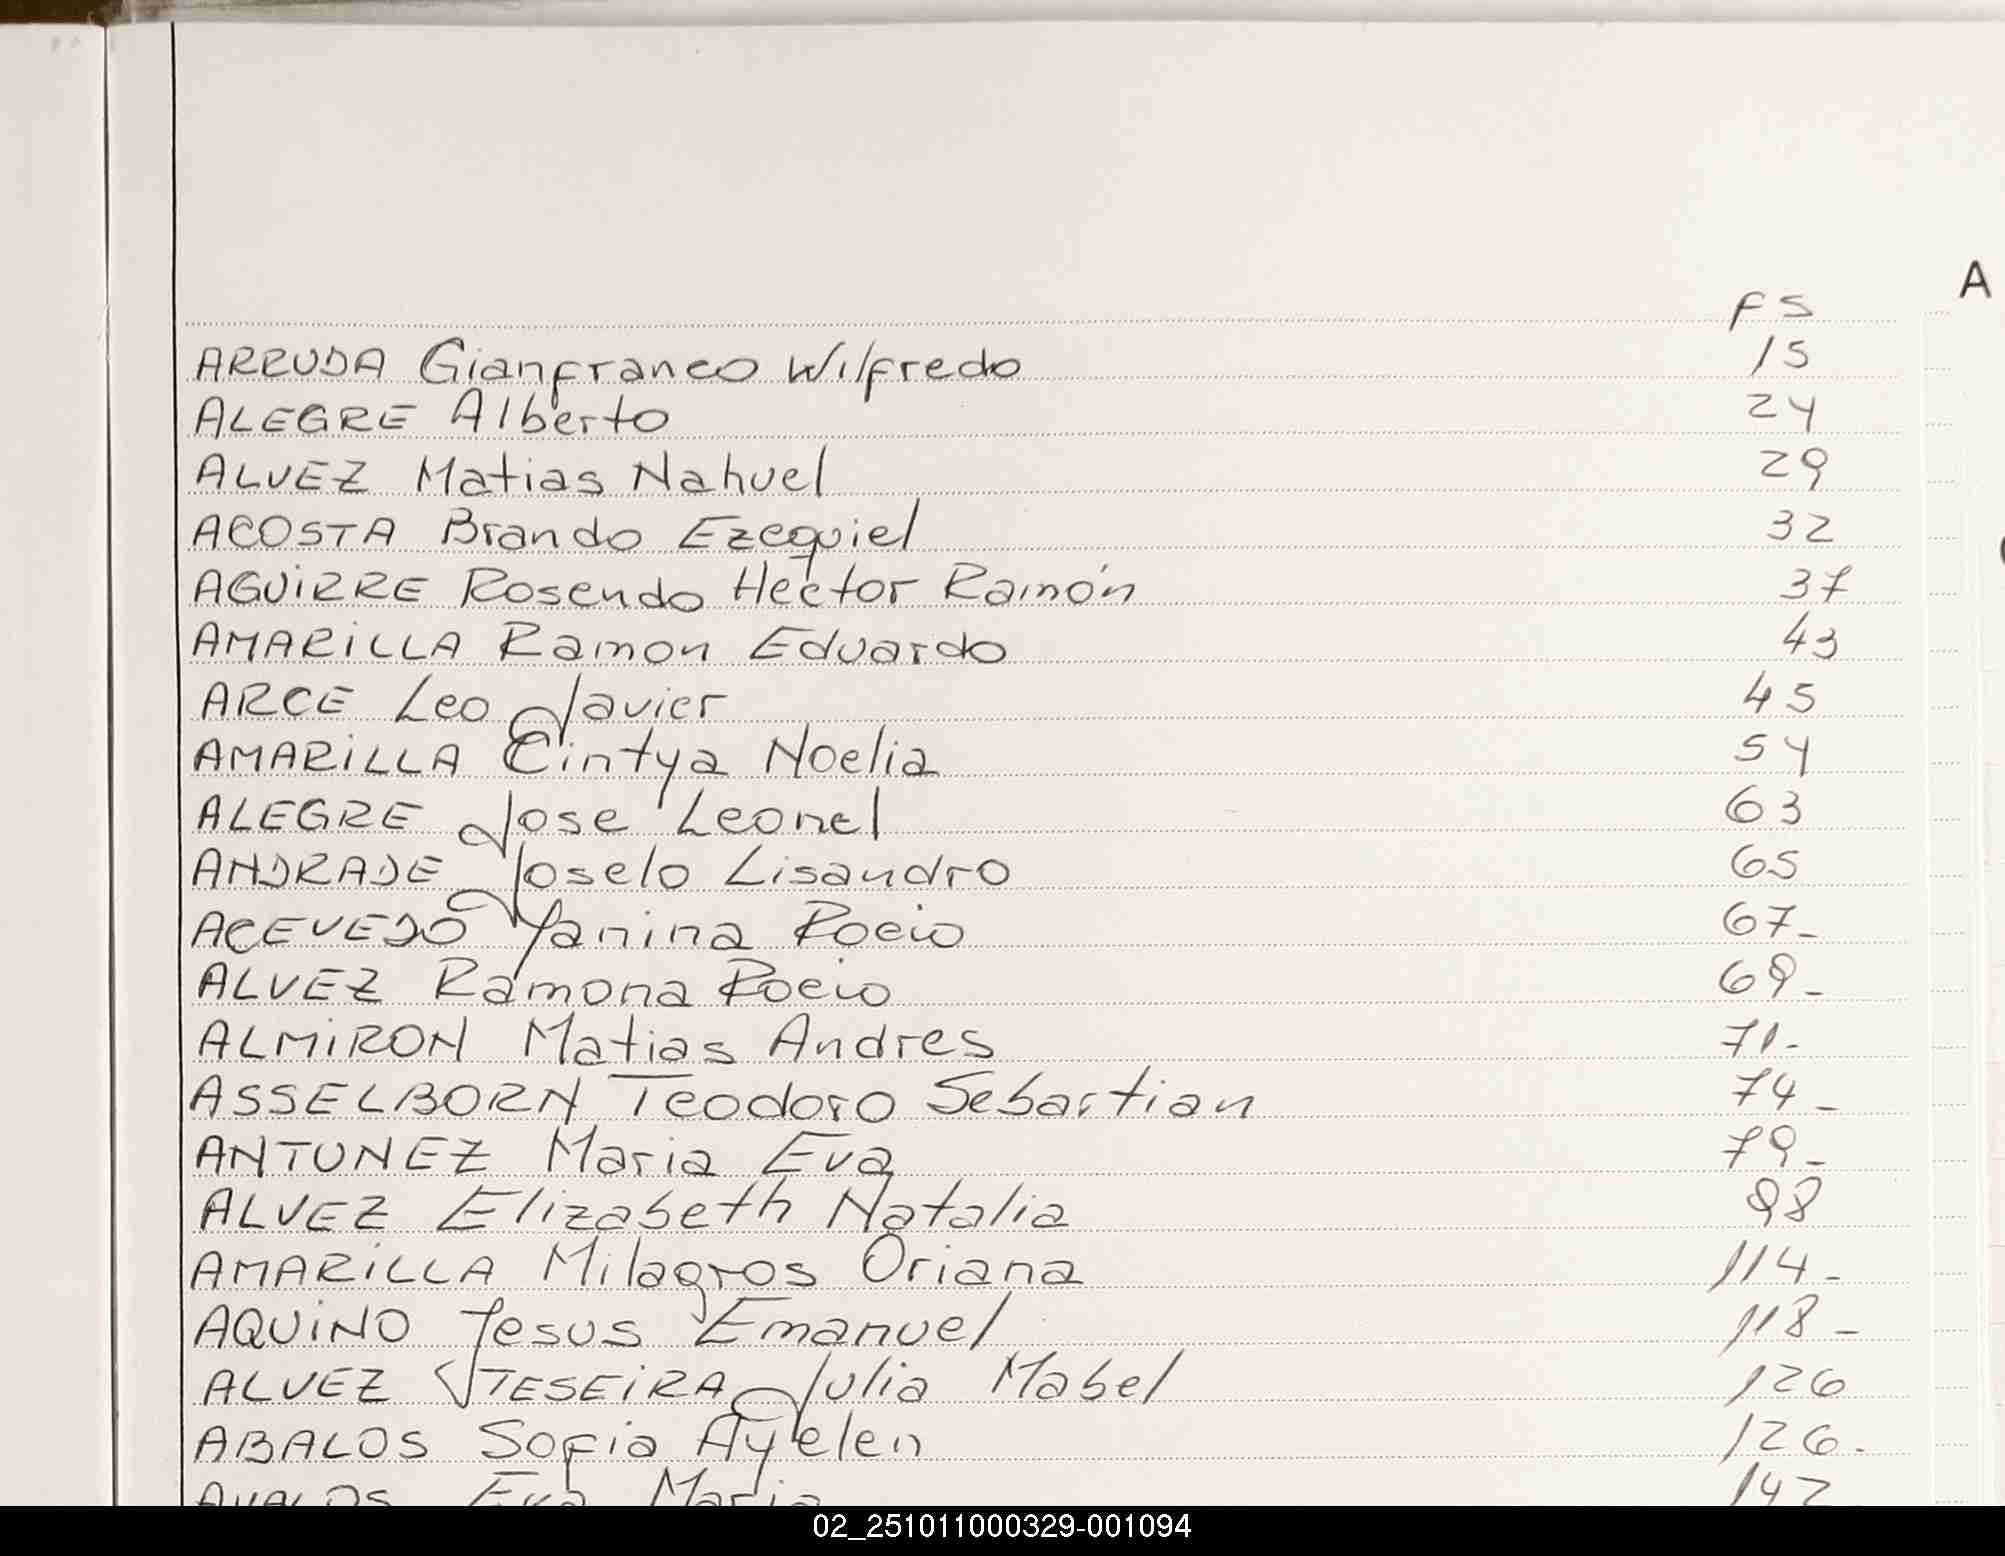 FS
A
ARRUDA Gianfranco Wilfredo 15
ALEGRE Alberto 24
ALVEZ Matias Nahuel 29
ACOSTA Brando Ezequiel 32
AGUIRRE Rosendo Hector Ramón 37
AMARILLA Ramon Eduardo 43
ARCE Leo Javier 45
AMARILLA Cintya Noelia 54
ALEGRE Jose Leonel 63
ANDRADE Joselo Lisandro 65
ACEVEDO Yanina Rocio 67-
ALVEZ Ramona Rocio 69-
ALMIRON Matias Andres 71-
ASSELBORN Teodoro Sebastian 74-
ANTUNEZ Maria Eva 79-
ALVEZ Elizabeth Natalia 98
AMARILLA Milagros Oriana 114-
AQUINO Jesus Emanuel 118-
ALVEZ TESEIRA Julia Mabel 126
ABALOS Sofia Ayelen 126.
AVALOS Eva Maria 142
02_251011000329-001094